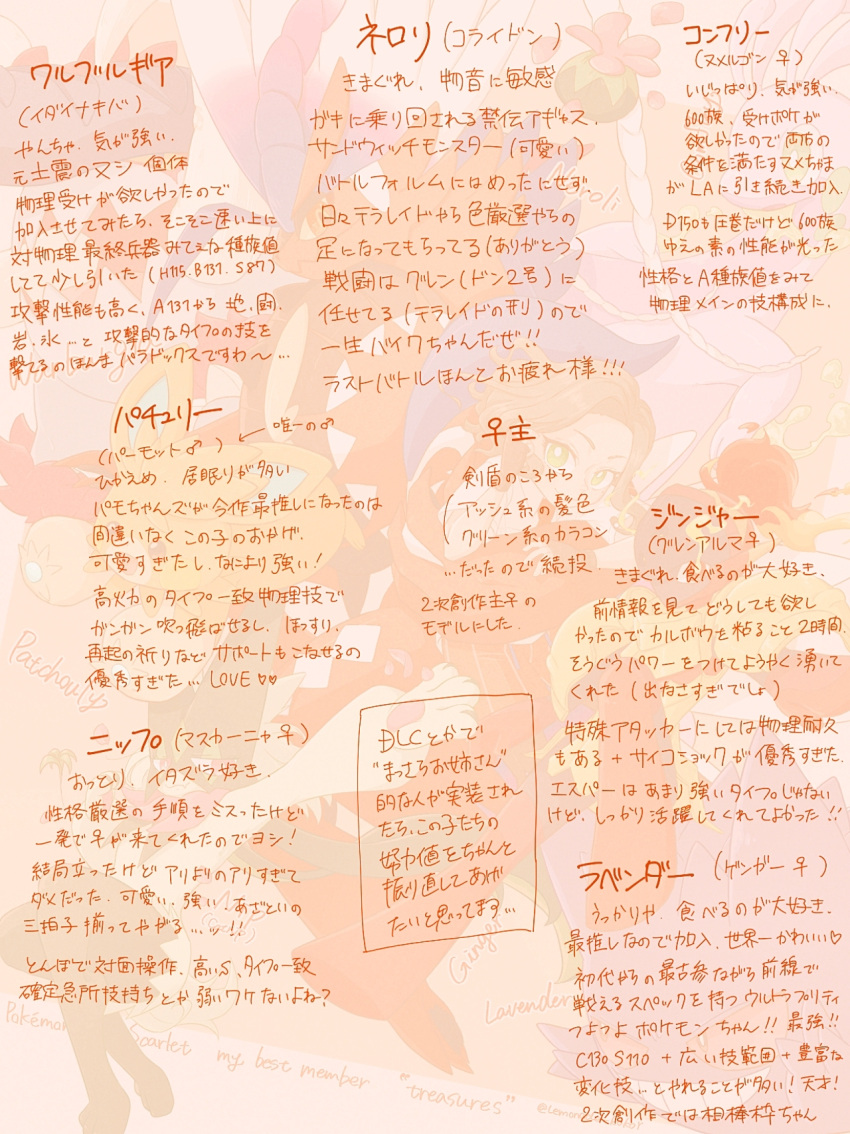 ワルブルギア
(イダイナキバ)
やんちゃ、気が強い、
元土震のヌシ個体
物理受けが欲しかったので
加入させてみたら、そこそこ速い上に
対物理最終兵器みてえな種族値
してて少し引いた (H115.B131.S87)
攻撃性能も高く、A131から地、闘、
岩、氷…と攻撃的なタイプの技を
撃てるのほんまパラドックスですわ〜…
ネロリ (コライドン)
きまぐれ、物音に敏感
ガキに乗り回される禁伝アギャス、
サンドウィッチモンスター (可愛い)
バトルフォルムにはめったにせず、
日々テラレイドやら色厳選やらの
足になってもらってる (ありがとう)
戦闘はグレン (ドン2号) に
任せてる (テラレイドの刑) ので
一生バイクちゃんだぜ!!
ラストバトルほんとお疲れ様!!!
コンフリー
(ヌメルゴン ♀)
いじっぱり、気が強い、
600族、受けポケが
欲しかったので両方の
条件を満たすヌメちゃま
がLAに引き続き加入、
D150も圧巻だけど600族
ゆえの素の性能が光った
性格とA種族値をみて
物理メインの技構成に、
パチュリー
(パーモット♂) ← 唯一の♂
ひかえめ、居眠りが多い
パモちゃんズが今作最推しになったのは
間違いなくこの子のおかげ、
可愛すぎたし、なにより強い!
高火力のタイプ一致物理技で
ガンガン吹っ飛ばせるし、ほっすり、
再起の祈りなどサポートもこなせるの
優秀すぎた… LOVE♡♡
♀主
剣盾のころから
アッシュ系の髪色
グリーン系のカラコン
…だったので続投、
2次創作主♀の
モデルにした、
ジンジャー
(グレンアルマ♀)
きまぐれ、食べるのが大好き、
前情報を見てどうしても欲し
かったのでカルボウを粘ること2時間、
そうぐうパワーをつけてようやく湧いて
くれた (出なさすぎでしょ)
特殊アタッカーにしては物理耐久
もある + サイコショックが優秀すぎた、
エスパーはあまり強いタイプじゃない
けど、しっかり活躍してくれてよかった!!
ニップ (マスカーニャ♀)
おっとり、イタズラ好き、
性格厳選の手順をミスったけど
一発で♀が来てくれたのでヨシ!
結局立ったけどアリよりのアリすぎて
ダメだった、可愛い、強い、あざといの
三拍子揃ってやがる…ッ!!
とんぼで対面操作、高いS、タイプ一致
確定急所技持ちとか弱いワケないよね?
DLCとかで
"まっさらお姉さん"
的な人が実装され
たら、この子たちの
努力値をちゃんと
振り直してあげ
たいと思ってます…
ラベンダー (ゲンガー♀)
うっかりや、食べるのが大好き、
最推しなので加入、世界一かわいい♡
初代からの最古参ながら前線で
戦えるスペックを持つウルトラプリティ
つよつよポケモンちゃん!! 最強!!
C130 S110 + 広い技範囲 + 豊富な
変化技…とやれることが多い! 天才!
2次創作では相棒枠ちゃん
Neroli
Patchouly
Ginger
Lavender
Pokémon Scarlet my best member "treasures"